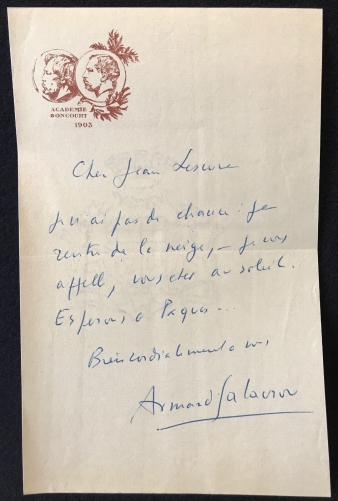 ACADÉMIE
GONCOURT
1903
Cher Jean Lescure
Je n'ai pas de chance : je
rentre de la neige, – je vous
appelle, vous etes au soleil.
Esperons a Paques...
Bien cordialement a vous
Armand Salacrou